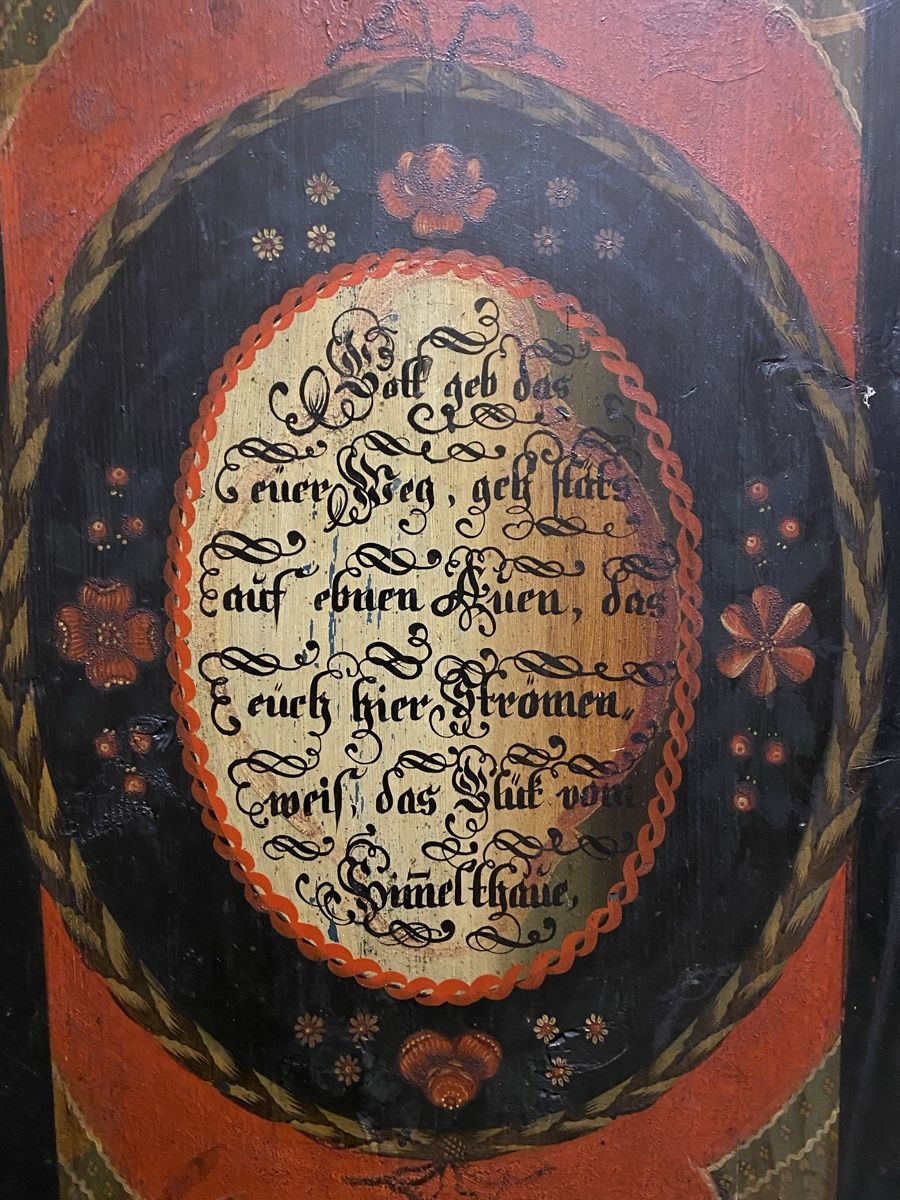 Gott geb das
eüer Weg, geh stäts
auf ebnen Auen, das
eüch hier Strömen„
weis, das Glük vom
Him̅elthaue,